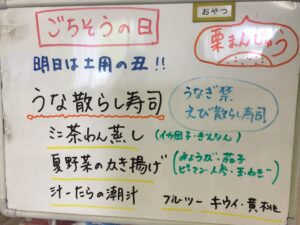 ごちそうの日
おやつ
栗まんじゅう
明日は土用の丑!!
うな散らし寿司
うなぎ禁、
えび散らし寿司
ミニ茶わん蒸し
(イカ団子・ぎんなん)
夏野菜のかき揚げ
(みょうが・茄子
ピーマン・人参・玉ねぎ)
汁ーたらの潮汁
フルツー キウイ・黄桃